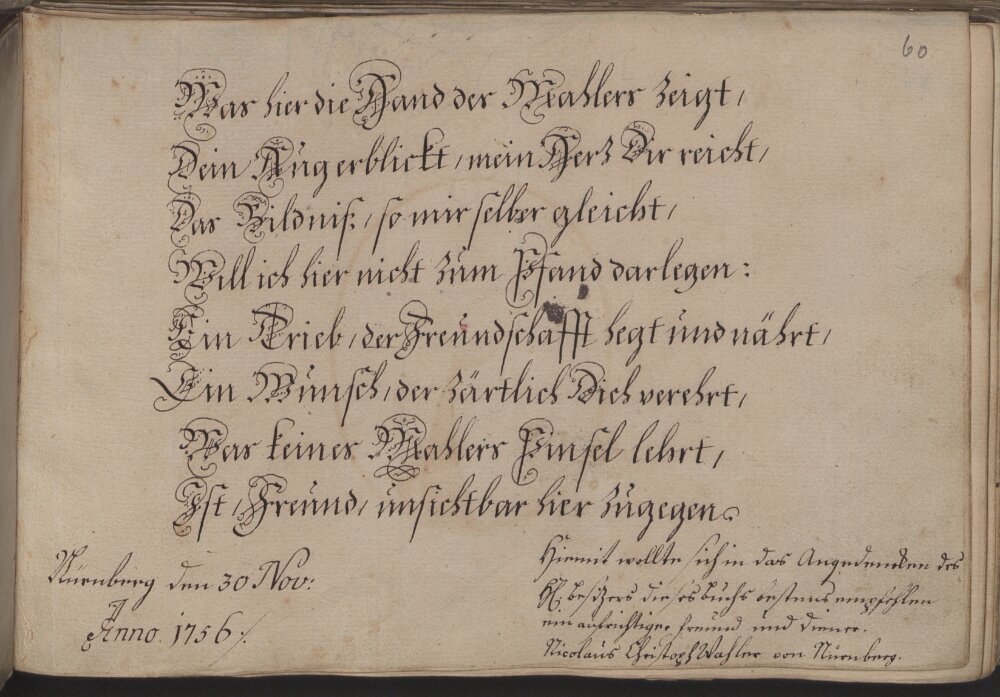 60
Was hier die Hand der Mahlers zeigt,
Dein Aug erblickt, mein Herz Dir reicht,
Das Bildniß, so mir selber gleicht,
Will ich hier nicht zum Pfand darlegen:
Ein Trieb, der Freundschafft hegt und nährt,
Ein Wunsch, der zärtlich Dich verehrt,
Was keines Mahlers Pinsel lehrt,
Ist, Freund, unsichtbar hier zugegen.
Nürnberg den 30 Nov:
Anno 1756 /.
Hiemit wollte sich in das Angedencken des
H. besizers dieses buchs bestens empfehlen
ein aufrichtiger freund und diener.
Nicolaus Christoph Wahler von Nürnberg.